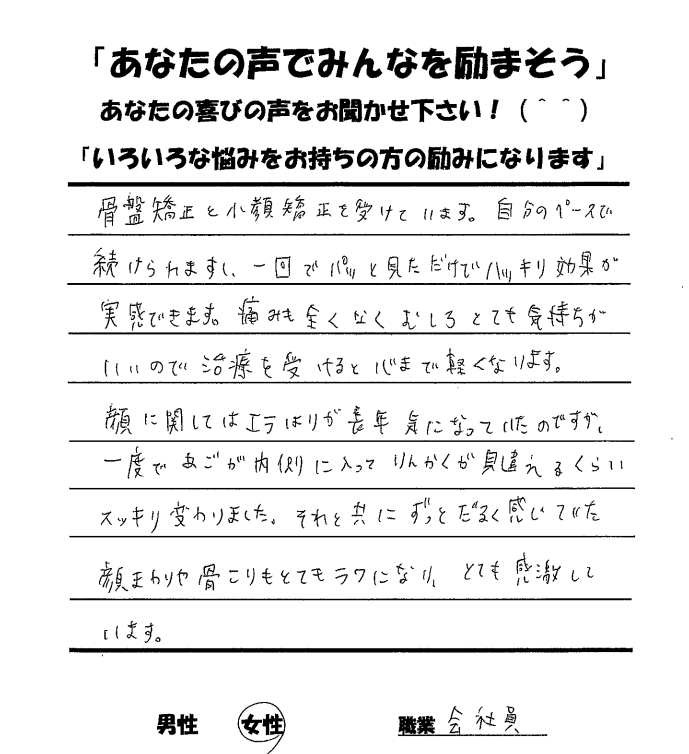 「あなたの声でみんなを励まそう」
あなたの喜びの声をお聞かせ下さい！（＾＾）
「いろいろな悩みをお持ちの方の励みになります」
骨盤矯正と小顔矯正を受けています。自分のペースで
続けられますし、一回でパッと見ただけでハッキリ効果が
実感できます。痛みも全くなくむしろとても気持ちが
いいので治療を受けると心まで軽くなります。
顔に関してはエラはりが長年気になっていたのですが、
一度であごが内側に入ってりんかくが見違えるくらい
スッキリ変わりました。それと共にずっとだるく感じていた
顔まわりや骨こりもとてもラクになり、とても感激して
います。
男性 女性 職業 会社員